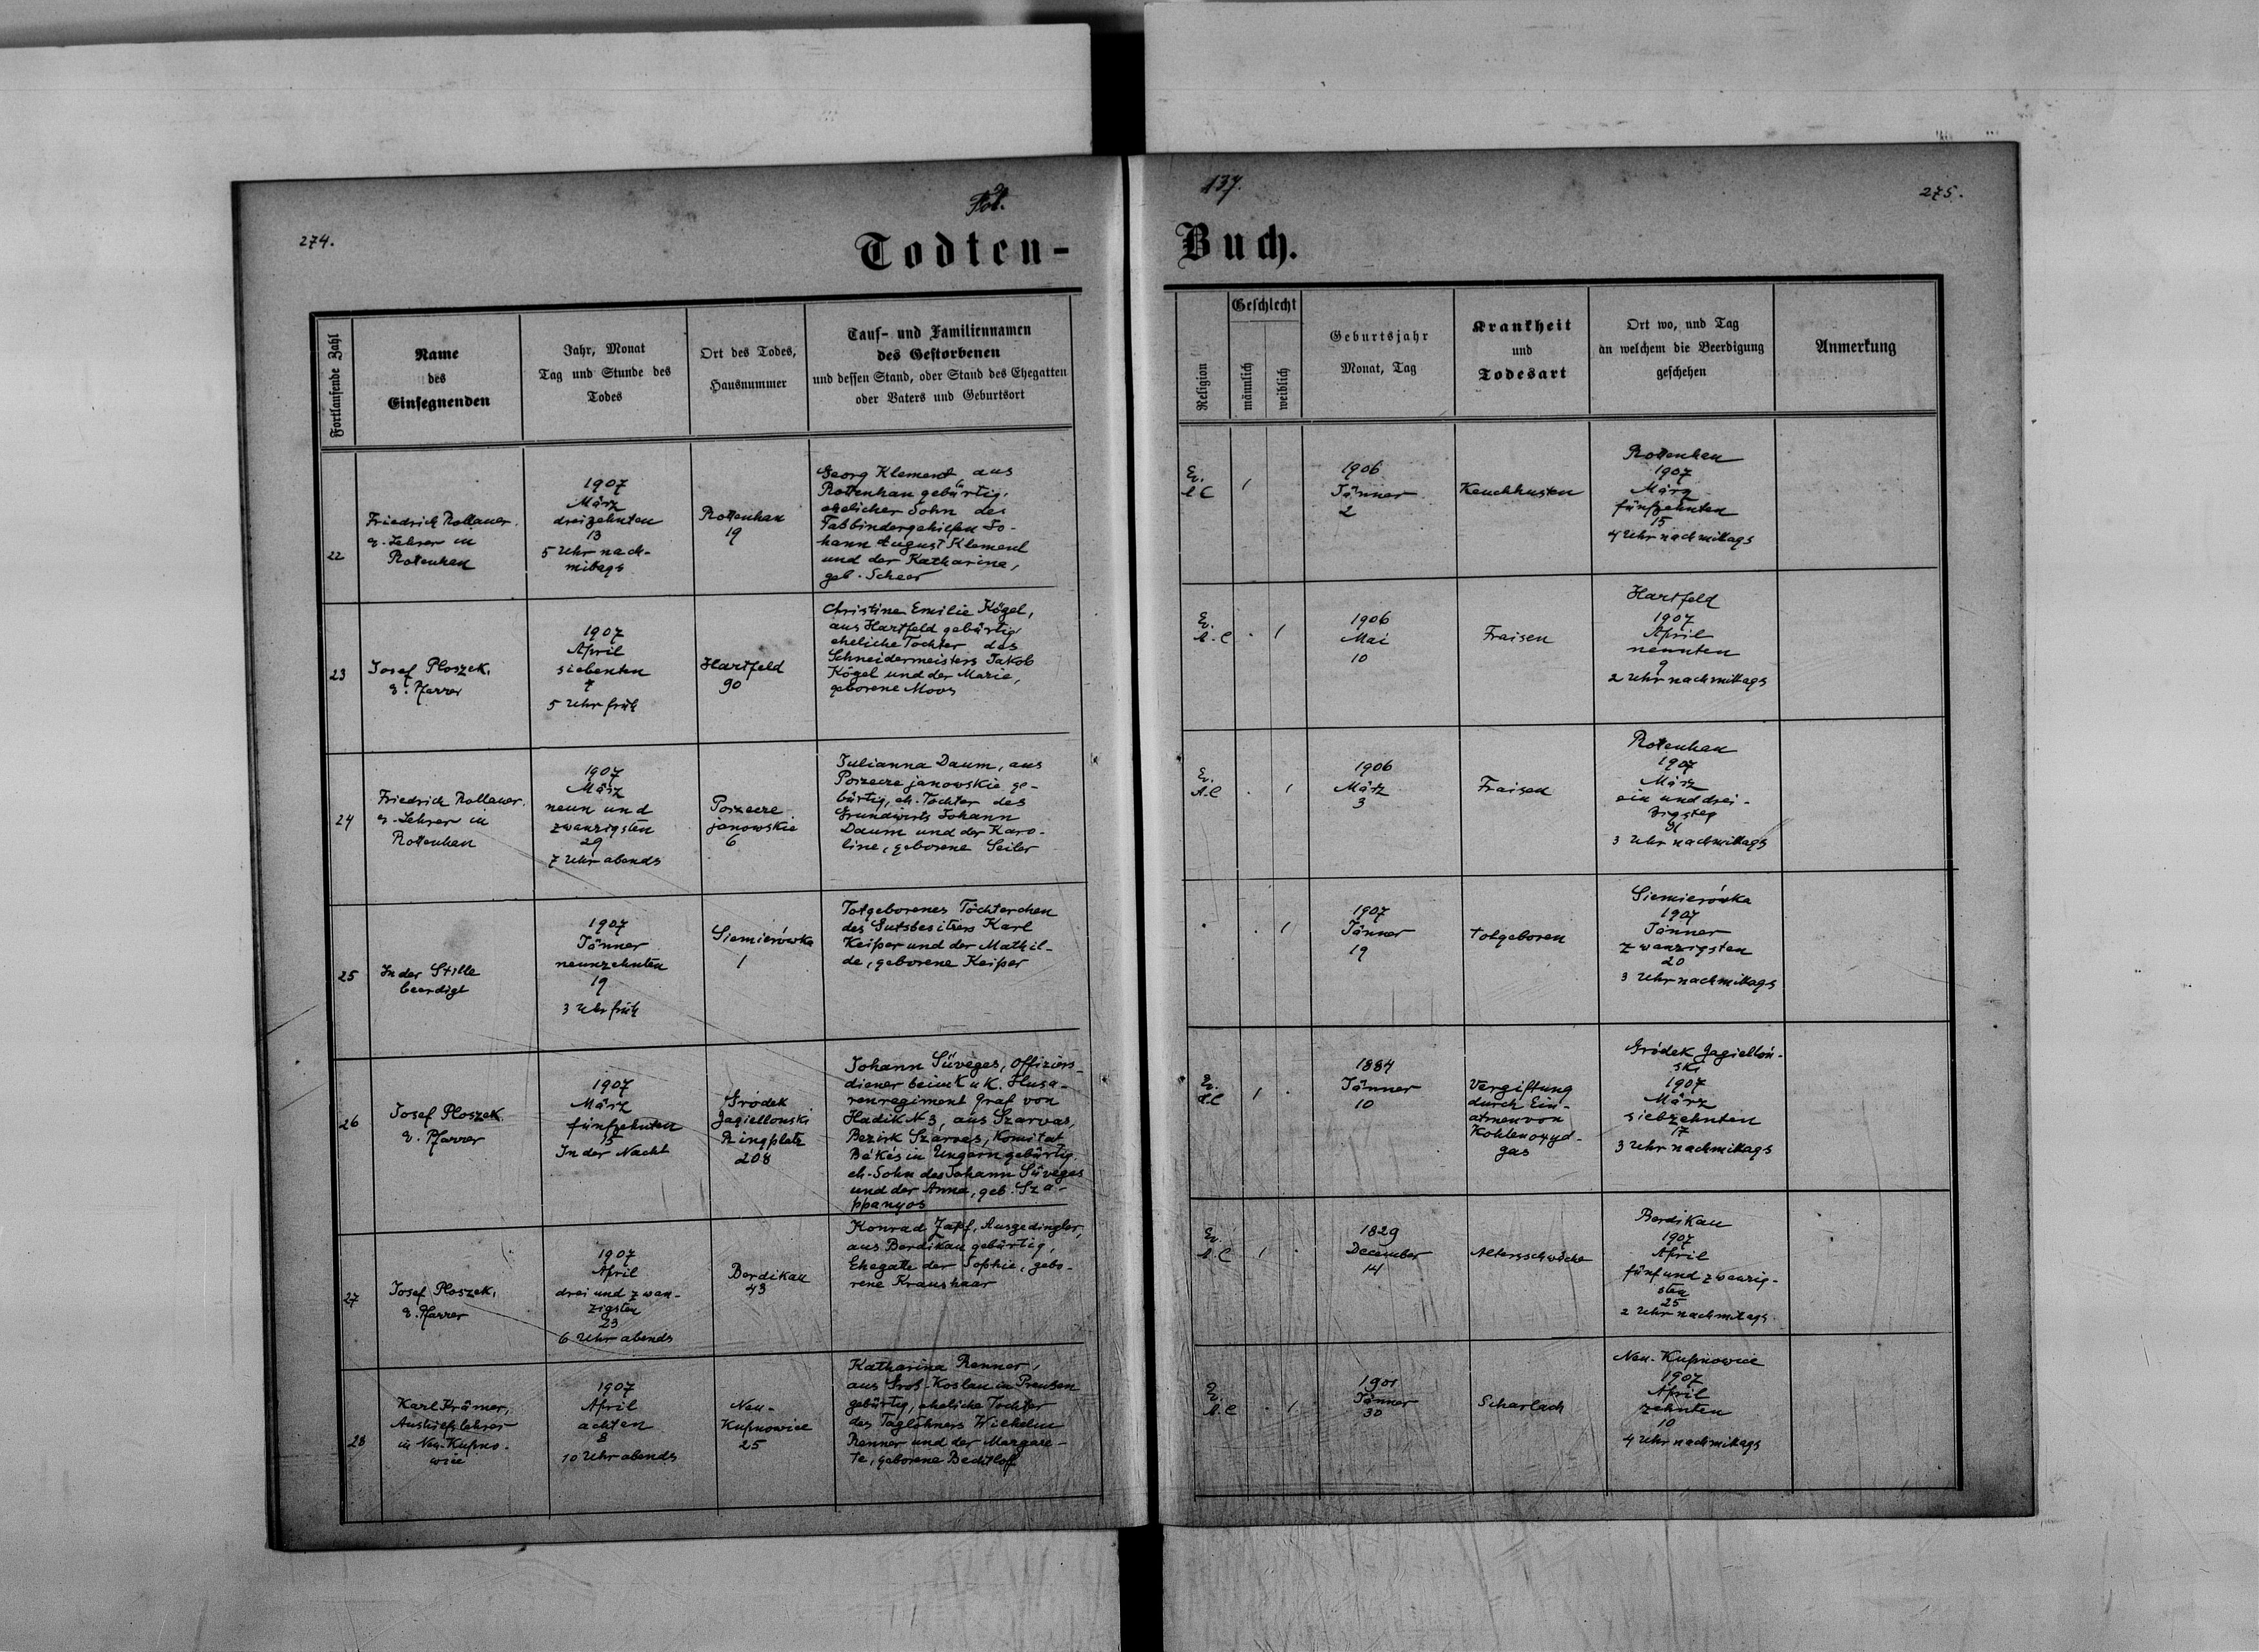 274.
Fol.
137.
275.
Todten-
Buch.
Fortlaufende Zahl
Name
des
Einsegnenden
Jahr, Monat
Tag und Stunde des
Todes
Ort des Todes,
Hausnummer
Tauf- und Familiennamen
des Gestorbenen
und dessen Stand, oder Stand des Ehegatten
oder Vaters und Geburtsort
Religion
Geschlecht
männlich
weiblich
Geburtsjahr
Monat, Tag
Krankheit
und
Todesart
Ort wo, und Tag
an welchem die Beerdigung
geschehen
Anmerkung
22
Friedrich Rollauer.
e. Lehrer in
Rottenhan
1907
März
dreizehnten
13
5 Uhr nach-
mittags
Rottenhan
19
Georg Klement aus
Rottenhan gebürtig,
ehelicher Sohn des
Faßbindergehilfen Jo-
hann August Klement
und der Katharine,
geb. Scheer
Ev.
A C
1
1906
Jänner
2
Keuchhusten
Rottenhan
1907
März
fünfzehnten
15
4 Uhr nachmittags
23
Josef Ploszek,
e. Pfarrer
1907
April
siebenten
7
5 Uhr früh
Hartfeld
90
Christine Emilie Kögel,
aus Hartfeld gebürtig
eheliche Tochter des
Schneidermeisters Jakob
Kögel und der Marie,
geborene Moos
Ev.
A. C
. 1
1906
Mai
10
Fraisen
Hartfeld
1907
April
neunten
9
2 Uhr nachmittags
24
Friedrich Rollauer.
e. Lehrer in
Rottenhan
1907
März
neun und
zwanzigsten
29
7 Uhr abends
Porzecze
janowskie
6
Julianna Daum, aus
Porzecze janowskie ge-
bürtig, eh. Tochter des
Grundwirts Johann
Daum und der Karo-
line, geborene Seiler
Ev.
A. C
. 1
1906
März
3
Fraisen
Rottenhan
1907
März
ein und drei-
zigsten
31
3 Uhr nachmittags
25
In der Stille
beerdigt
1907
Jänner
neunzehnten
19
3 Uhr früh
Siemierówka
1
Totgeborenes Töchterchen
des Gutsbesitzers Karl
Keiper und der Mathil-
de, geborene Keiper
. . 1
1907
Jänner
19
totgeboren
Siemierówka
1907
Jänner
zwanzigsten
20
3 Uhr nachmittags
26
Josef Ploszek
e. Pfarrer
1907
März
fünfzehnten
15
In der Nacht
Gródek
Jagiellonski
Ringplatz
208
Johann Süveges, Offiziers-
diener beim k u k. Husa-
renregiment Graf von
Hadik N 3, aus Szarvas,
Bezirk Szarvas, Komitat
Békés in Ungarn gebürtig,
eh. Sohn des Johann Süveges
und der Anna, geb. Sza-
ppanyos
Ev.
A.C
1 .
1884
Jänner
10
Vergiftung
durch Ein-
atmen von
Kohlenoxyd-
gas
Gródek Jagielloń-
ski
1907
März
siebzehnten
17
3 Uhr nachmittags
27
Josef Ploszek,
e. Pfarrer
1907
April
drei und zwan-
zigsten
23
6 Uhr abends
Burdikau
43
Konrad Zapf, Ausgedingler,
aus Burdikau gebürtig,
Ehegatte der Sophie, gebo-
rene Kraushaar
Ev.
A. C
1 .
1829
December
14
Altersschwäche
Burdikau
1907
April
fünf und zwanzig-
sten
25
2 Uhr nachmittags
28
Karl Krämer,
Aushilfslehrer
in Neu-Kupno-
wice
1907
April
achten
8
10 Uhr abends
Neu-
Kupnowice
25
Katharina Renner,
aus Groß-Koslau in Preußen
gebürtig, eheliche Tochter
des Taglöhners Wilhelm
Renner und der Margare-
te, geborene Bechtloff
Ev.
A. C
. 1
1901
Jänner
30
Scharlach
Neu-Kupnowice
1907
April
zehnten
10
4 Uhr nachmittags